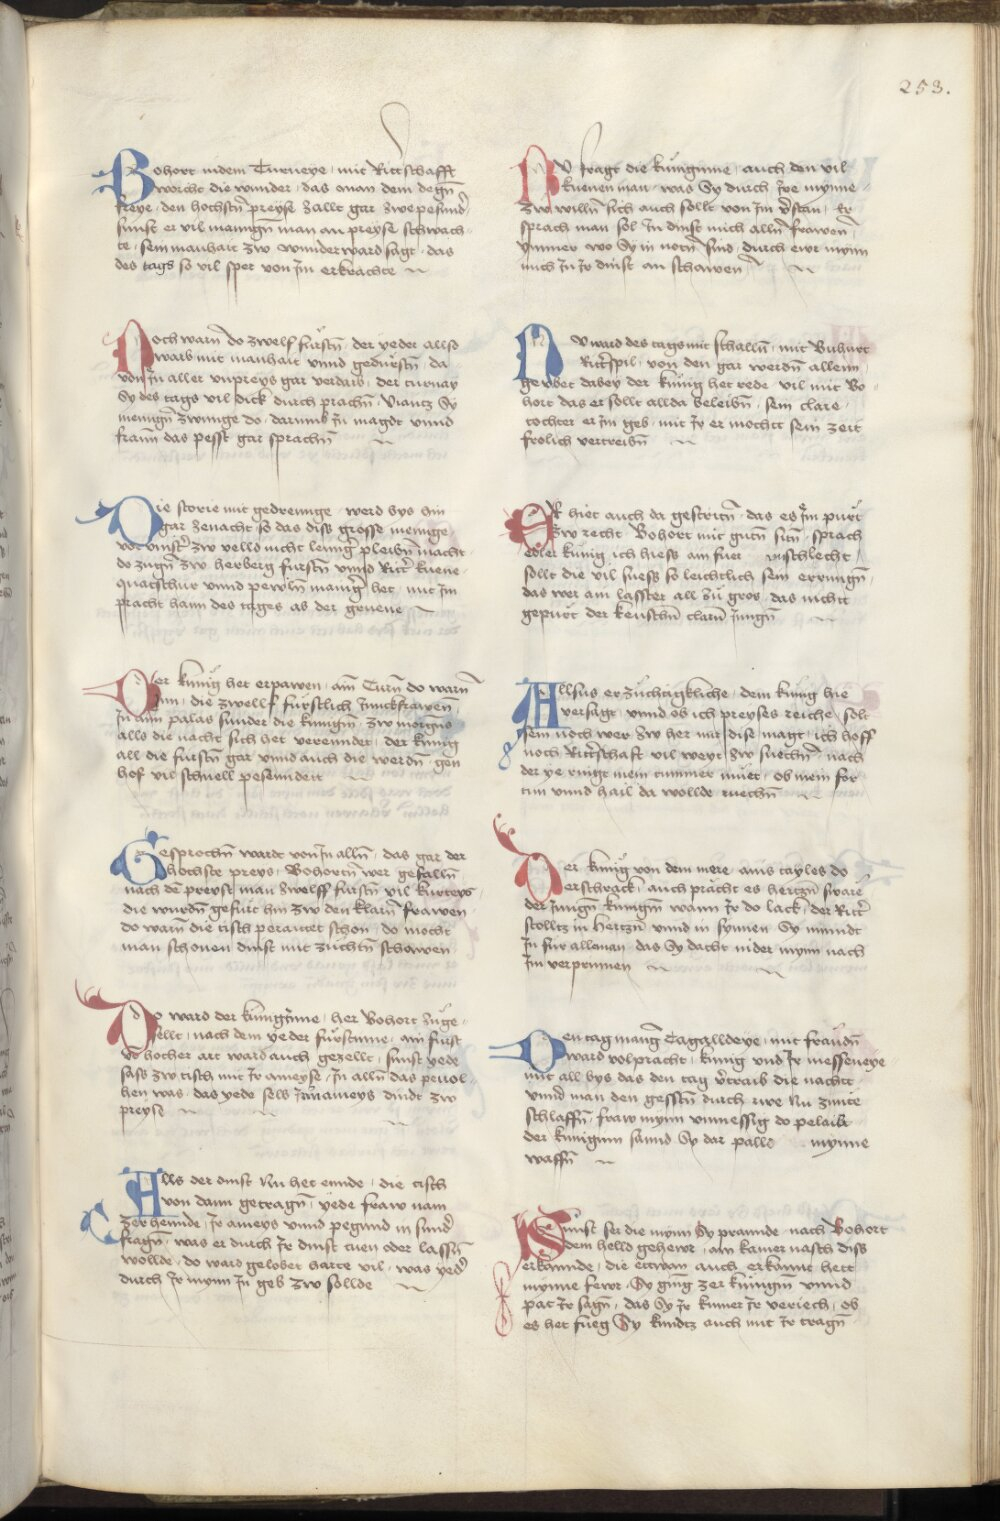 253.
Bohort in dem Turneye mit Ritterschafft
worcht die wunder das man dem degn̄
freye den hochstn̄ preyse zallt gar zwe pesunder
sunst er vil mannign̄ man an preyse schwach-
te sein manhait zw wunder ward sagt das
des tags so vil sper von Jm erkrachte
Noch warn̄ do zwelf fürstn̄ der yeder allso
warb mit manhait vnnd gedürstn̄ da
von Jn aller vnpreys gar verdarb der turnay
Sy des tags vil dick durch prachn̄ Sy
menign̄ zwinge do darumb Jn magdt vnnd
frawn das pesst gar sprachn̄
Die storie mit gedrennge werd bys hin
gar zenacht so das diss grosse menige
vor vinster zw velld nicht lennger pleibn̄ macht
do zugn̄ zw herberg fürstn̄ vnnd Ritter kuene
quatschur vnnd pewln̄ manig' het mit Jm
pracht haim des tages ab der gruene
Der künig het erpawen ain Turn̄ do warn̄
Jnn die zwellf fürstlich Junckfrawen
Jn aim palas sunder die künigin zw morgns
alls die nacht sich het verennder der künig
all die fürstn̄ gar vnnd auch die werdn̄ gen
hof vil schnell pesennдет
Gesprochn̄ wardt von Jn alln̄ das gar der
hochste preys Bohortn̄ wer gefalln̄
nach dē preyse man zwelff fürstn̄ vil kurteys
die wurdn̄ gefürt hin zw den klarn̄ frawen
do warn̄ die tisch peraitet schon do mocht
man schonen dinst mit züchtn̄ schawen
Do ward der künginne her Bohort zuge-
sellt nach dem yeder fürstinne ain fürst
vō hocher art ward auch gezellt sunst yede
sass zw tisch mit Jr ameyse Jn alln̄ das pevol-
hen was das yede selb Jrm ameys dindt zw
preyse
Alls der dinst Nu het ennde die tisch
von dann getragn̄ yede fraw nam
zer hennde Jr ameys vnnd pegund in sunder
fragn̄ was er durch Jr dinst tuen oder lassn̄
wollde do ward gelobet harte vil was yeder
durch Jr mynn Jn geb zw sollde
NV fragt die künginne auch den vil
kuenen man was Sy durch Jre mynne
zw willn̄ sich auch sollt von Jm verstan Er
sprach man sol Jn dinst mich alln̄ frawen
ymmer wo Sy in notn̄ sind durch ewr mynn
mich Jn Jr dinst an schawen
NV ward des tags mit schalln̄ mit Buhurt
Ritterspil von den gar werdn̄ allenn
geübet dabey der künig het rede vil mit Bo-
hort das er sollt allda beleibn̄ sein clare
tochter er Jm geb mit Jr er mochtt sein zeit
frolich vertreibn̄
Er hiet auch da gestritn̄ das es Jm pürt
zw recht Bohort mit gutn̄ sitn̄ sprach
edler künig ich hiess ain fuer vnschlecht
sollt die vil suess so leichtlich sein errungn̄
das wer ain lasster all zu gros das nichtt
gepürt der keuschn̄ clarn̄ Jungn̄
Allsus er züchtigkliche dem künig hie
versagt vnnd ob ich preyses reiche solt
sein noch wer zw her mir dise magt ich hoff
noch Ritterschaft vil weyt zw suechn̄ nach
der ye ringt mein tummer muet ob mein for-
tun vnnd hail da wollde ruechn̄
Der künig von dem mere ains tayles do
erschrack auch pracht es hertzn̄ sware
der Jungn̄ künigin wann Jr do lack der Ritter
stolltz in hertzn̄ vnnd in synnen Sy mynndt
Jn für alleman das Sy dacht nider mynn nach
Jm verprunnen
Den tag manger Tagalldeye mit fraudn̄
ward volpracht künig vnd Jr messeneye
mit all bys das den tag vertraib die nachtt
vnnd man den gesstn̄ durch rwe Nu zunte
schlaffn̄ fraw mynn vnmessig do pelaib
der künginn sannd Sy dar palld mynne
waffn̄
Sunst ser die mynn Sy prannde nach Bohort
dem helld gehewr ain kamer nasch diss
erkannde die ettwan auch erkannt hett
mynne fewr Sy ging zer künigin vnnd
pat Jr sagn̄ das Sy Jr kumer Jr veriech ob
es het fueg Sy kundtz auch mit Jr tragn̄